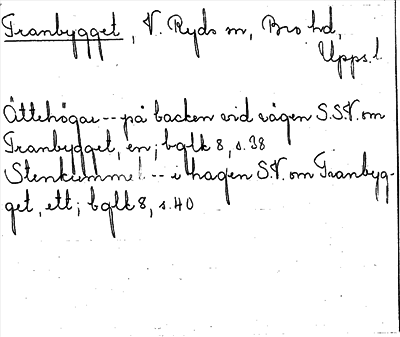 Tranbygget, V. Ryds sn, Bro hd,
Upps. l.
Ättehögar -- på backen vid vägen S.S.V. om
Tranbygget, en; bglk 8, s. 38
Stenkummel -- i hagen S.V. om Tranbyg-
get, ett; bglk 8, s. 40